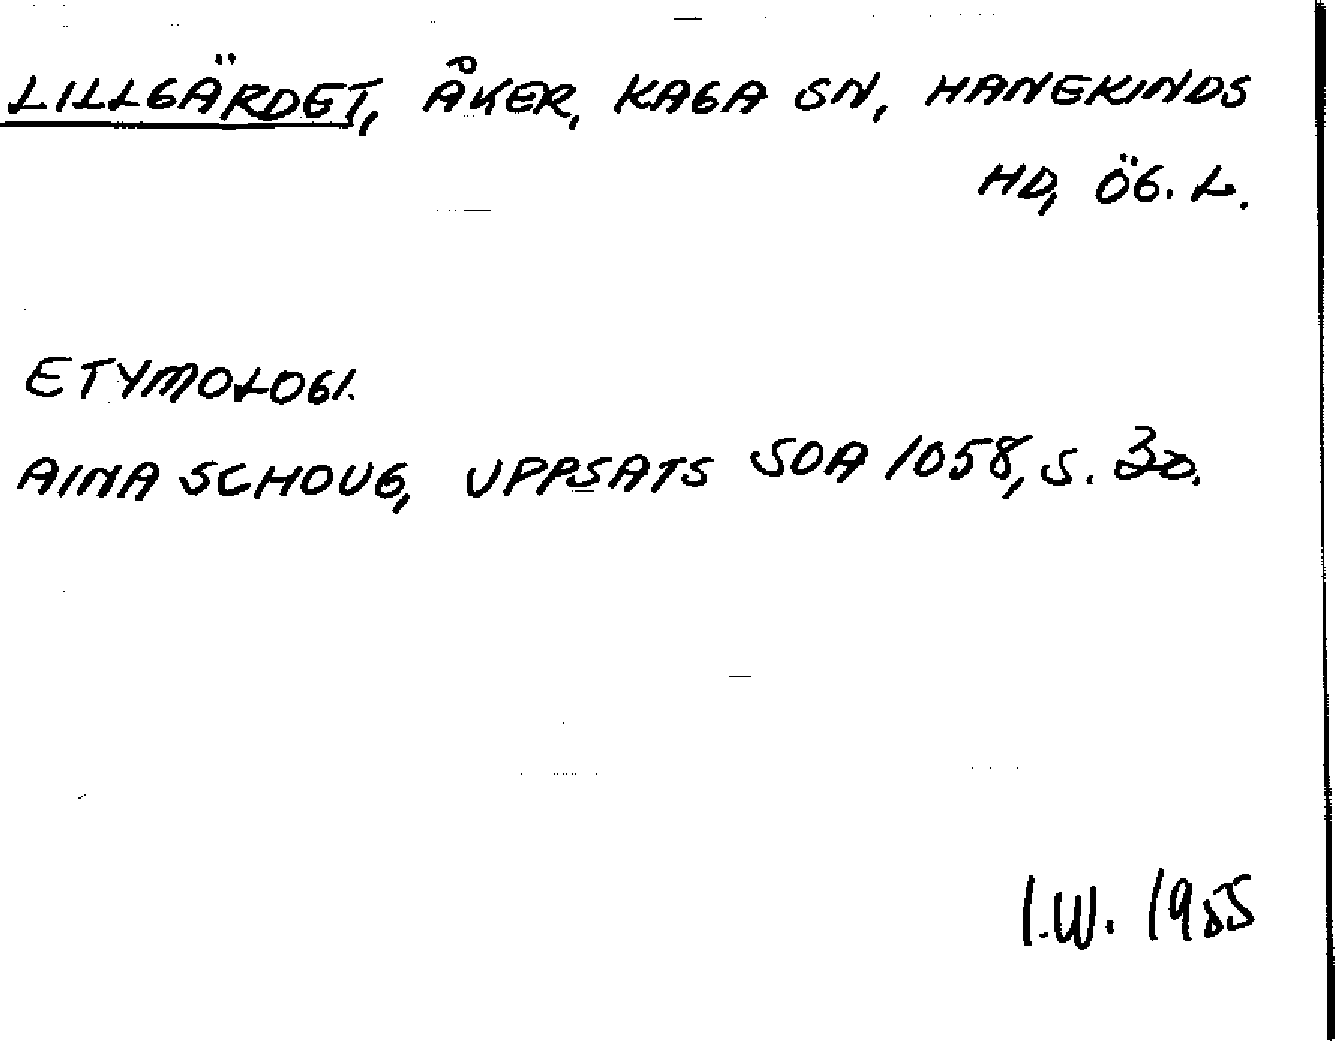 LILLGÄRDET, ÅKER, KAGA SN, HANEKINDS
HD, ÖG. L.
ETYMOLOGI.
AINA SCHOUG, UPPSATS SOA 1058, S. 30.
I.W. 1955